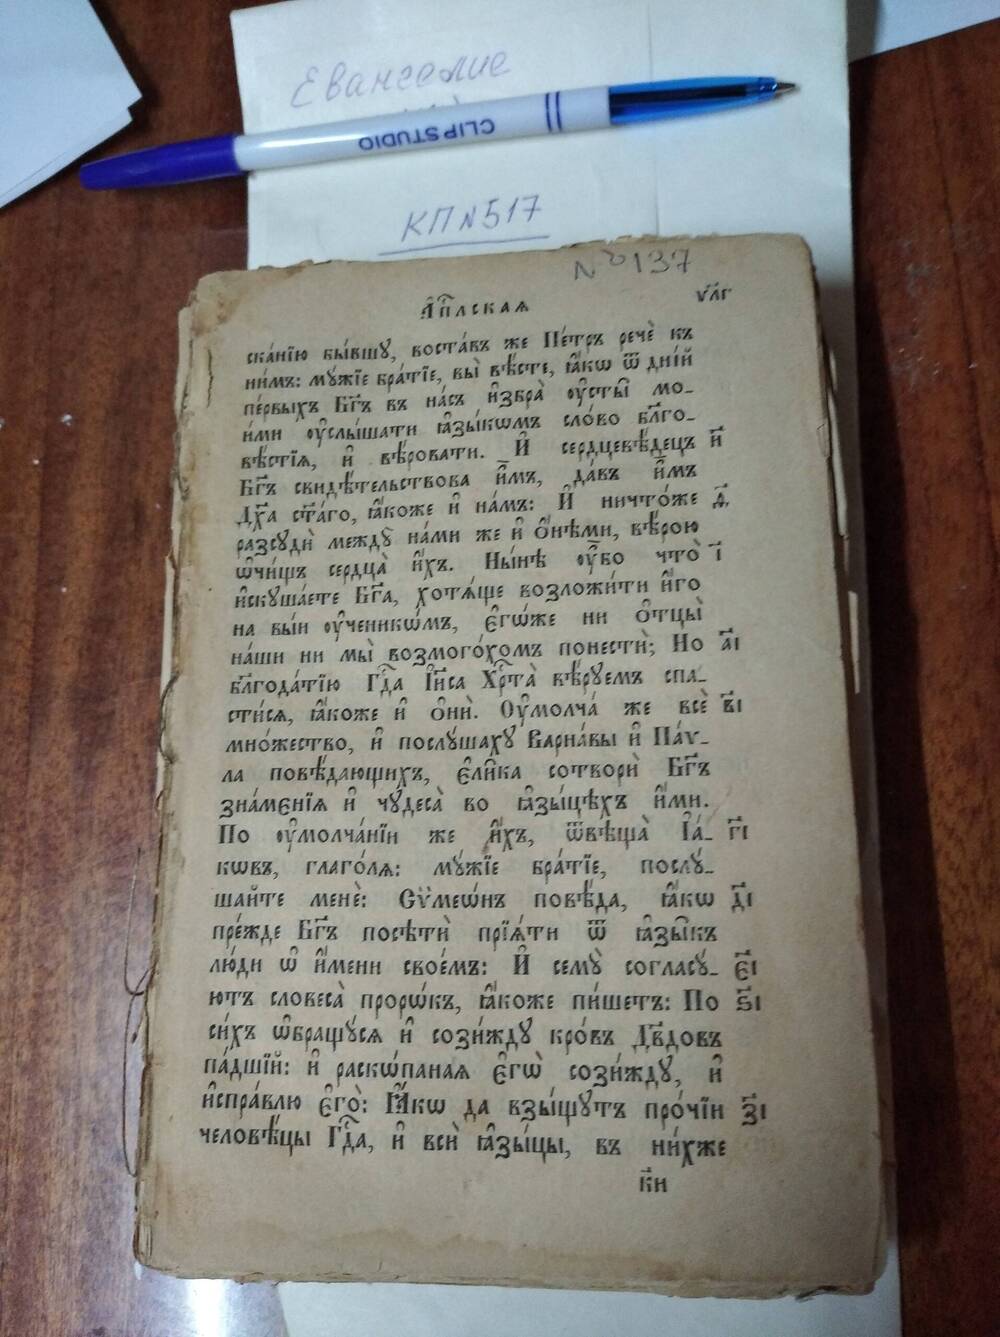 Евангелие
CLIPSTUDIO
КП №517
№137
А҆пⷭ҇лская ѵ҃лг
ска́нїю бы́вшу, воста́въ же Пе́тръ речѐ къ
ни̑мъ: мꙋ́жїе бра́тїе, вы̀ вѣ́сте, ꙗ҆́кѡ ѿ дні́й
пе́рвыхъ Бг҃ъ въ на́съ и҆збра̀ ᲂу҆сты̑ мо_
и́ми ᲂу҆слы́шати ꙗ҆зы́кѡмъ сло́во бл҃го_
вѣ́стїѧ, и҆ вѣ́ровати. И҆ сердцевѣ́децъ и҃
Бг҃ъ свидѣ́тельствова и҆̀мъ, да́въ и҆̀мъ
Дх҃а ст҃а́го, ꙗ҆́коже и҆ на́мъ: И҆ ничто́же ѳ҃
разсꙋдѝ междꙋ̀ на́ми же и҆ ѻ҆нѣ́ми, вѣ́рою
ѡ҆чи́щъ сердца̀ и҆́хъ. Ны́нѣ ᲂу҆̀бо что̀ і҃
и҆скꙋша́ете Бг҃а, хотѧ́ще возложи́ти и҆́го
на вы́и ᲂу҆ченикѡ́мъ, є҆гѡ́же ни ѻ҆тцы̀
на́ши ни мы̀ возмого́хомъ понестѝ; Но а҃і
бл҃года́тїю Гдⷭ҇а І҆и҃са Хрⷭ҇та̀ вѣ́рꙋемъ спа_
сти́сѧ, ꙗ҆́коже и҆ ѻ҆нѝ. Оу҆молча́ же всѐ в҃і
мно́жество, и҆ послꙋ́шахꙋ Варна́вы и҆ Па́ѵ_
ла повѣ́дающихъ, є҆ли̑ка сотворѝ Бг҃ъ
зна́менїѧ и҆ чꙋдеса̀ во ꙗ҆зы́цѣхъ и҆́ми.
По ᲂу҆молча́нїи же и҆́хъ, ѿвѣща̀ І҆а́_ г҃і
кѡвъ, глаго́лѧ: мꙋ́жїе бра́тїе, послꙋ́_
шайте менѐ: Сѷмеѡ́нъ повѣ́да, ꙗ҆́кѡ д҃і
пре́жде Бг҃ъ посѣтѝ прїѧ́ти ѿ ꙗ҆зы̑къ
лю́ди ѡ҆ и҆́мени свое́мъ: И҆ семꙋ̀ согласꙋ́_ є҃і
ютъ словеса̀ прорѡ́къ, ꙗ҆́коже пи́шетъ: По ѕ҃і
си́хъ ѡ҆бращꙋ́сѧ и҆ сози́ждꙋ кро́въ Дв҃довъ
па́дшїй: и҆ раскѡ́паная є҆гѡ̀ сози́ждꙋ, и҆
и҆спра́влю є҆го̀: Ꙗ҆́кѡ да взы́щꙋтъ про́чїи з҃і
человѣ́цы Гдⷭ҇а, и҆ всѝ ꙗ҆зы́цы, въ ни́хже
к҃и